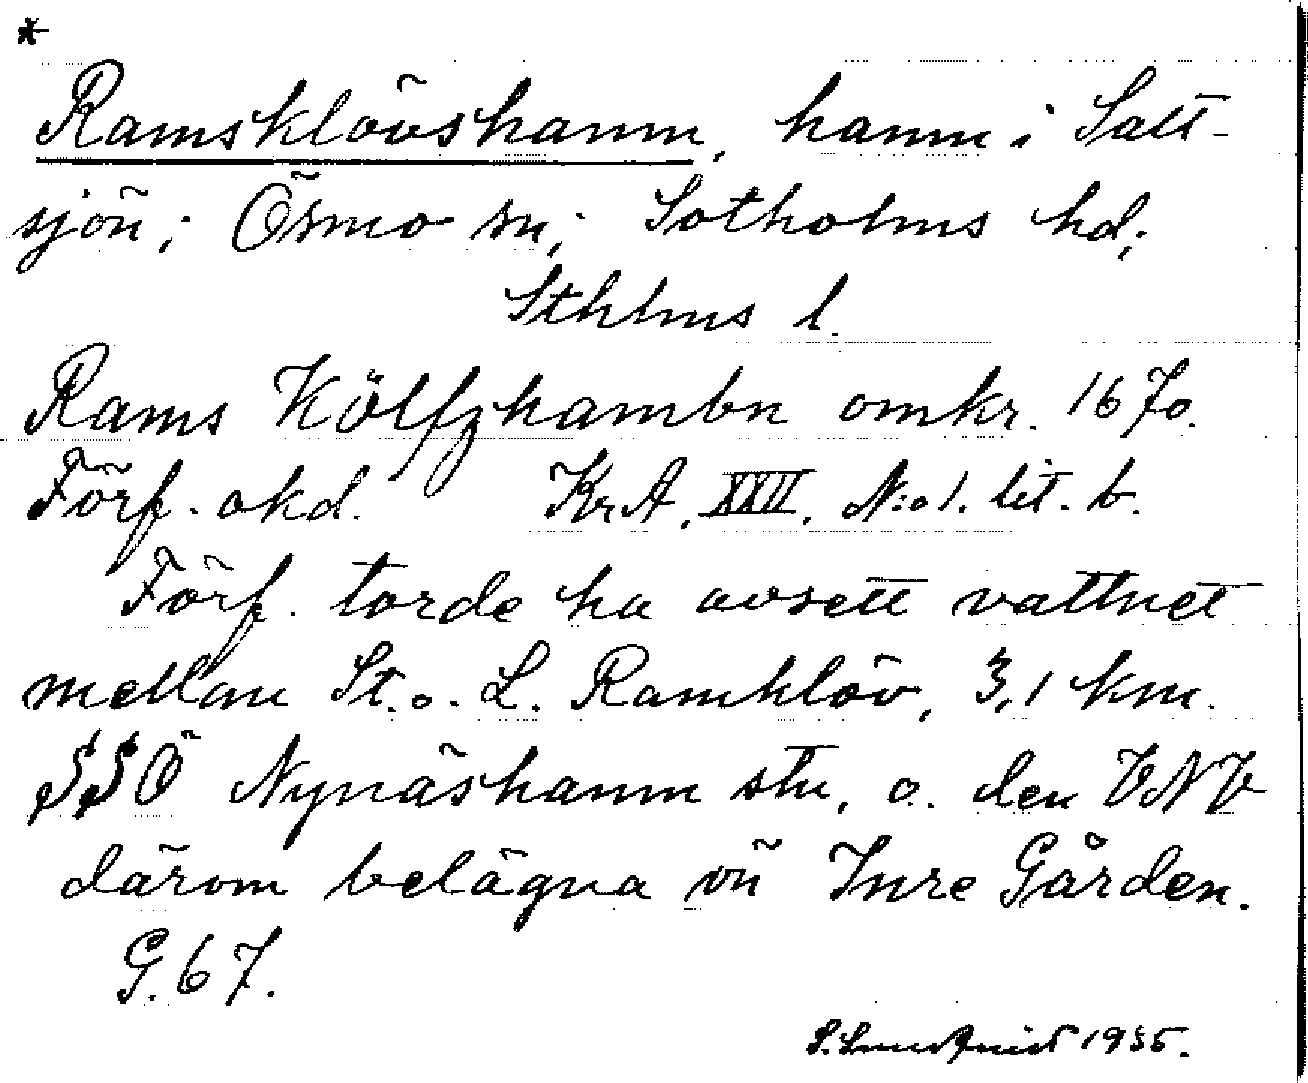 *
Ramsklövshamn, hamn i Salt-
sjön; Ösmo sn; Sotholms hd;
Sthlms l.
Rams Kölfzhambn omkr. 1670.
Förf. okd. KrA. XXII. N:o 1. lit. b.
Förf. torde ha avsett vattnet
mellan St. o. L. Ramklöv, 3,1 km.
SSÖ Nynäshamn stn, o. den VNV
därom belägna ön Inre Gården.
G. 67.
S. Lundqvist 1935.